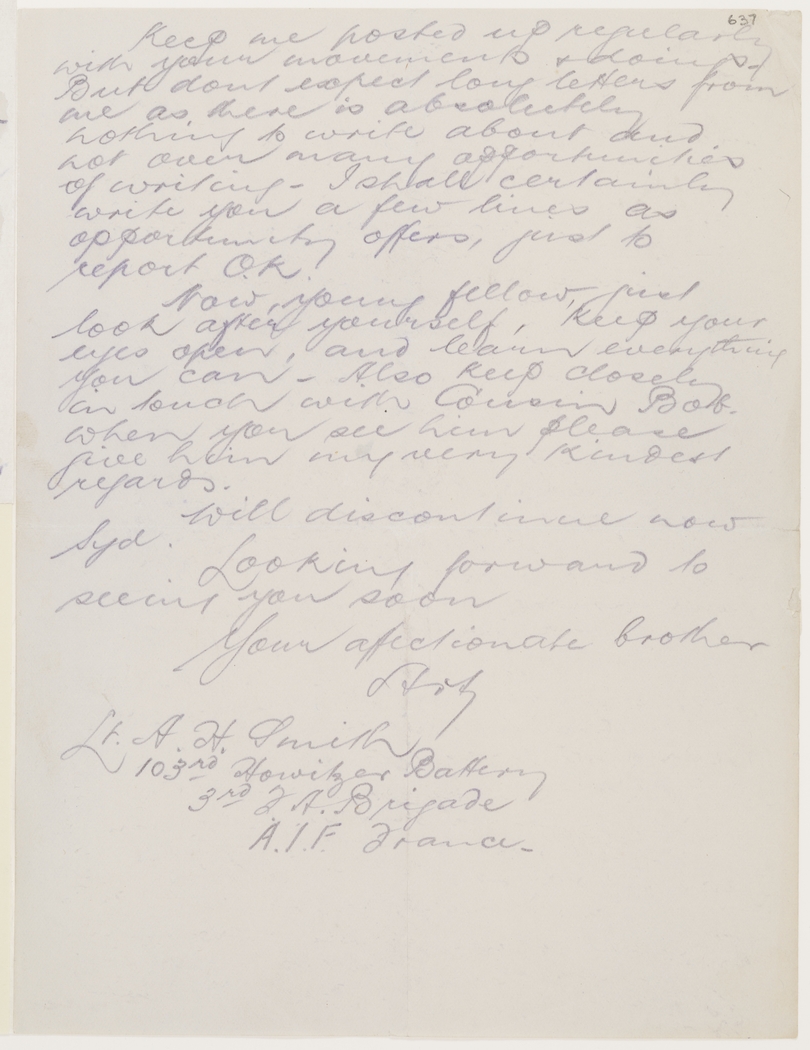 637
Keep me posted up regularly
with your movements & doings.
But dont expect long letters from
me as there is absolutely
nothing to write about and
not over many opportunities
of writing - I shall certainly
write you a few lines as
opportunity offers, just to
report O.K.
Now, young fellow, just
look after yourself, Keep your
eyes open, and learn everything
you can - Also keep closely
in touch with Cousin Bob.
when you see him please
give him my very kindest
regards.
Will discontinue now
Syd.
Looking forward to
seeing you soon
Your affectionate brother
Art
Lt. A. H. Smith
103rd Howitzer Battery
3rd F.A. Brigade
A.I.F. France -